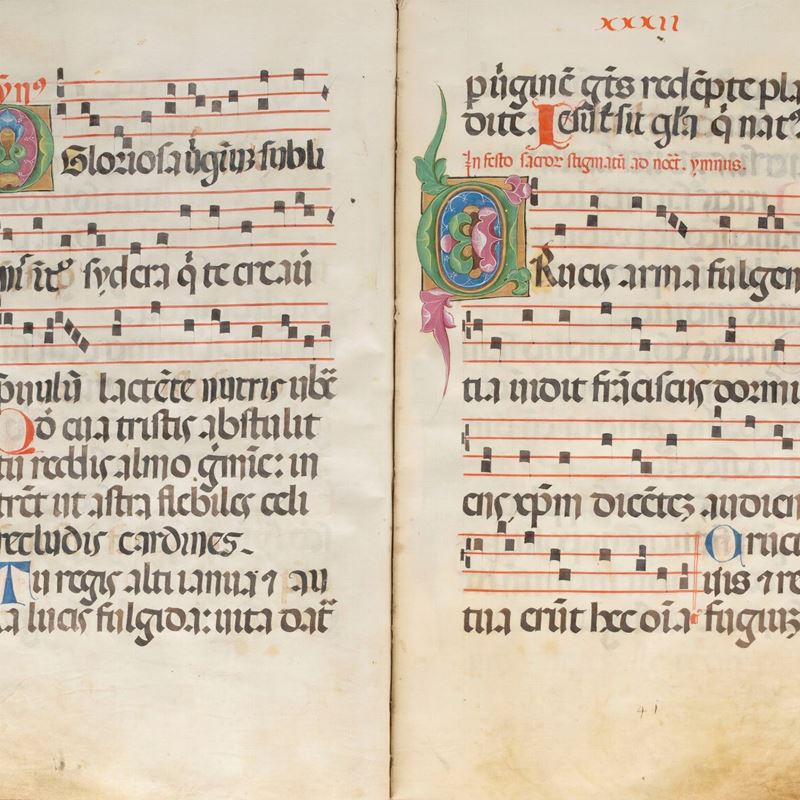 yn⁹
Gloriosa ũgĩuʒ subli
sydera q̇ te creaũ
puulũ lactẽte nutris ubẽ
Qđ eua tristis abstulit
tu reddis almo g̃mie: in
trẽt ut astra flebiles celi
recludis cardines.
Tu regis alti ianua ⁊ au
la lucis fulgida: uita dat̃
xxxii
p ũginẽ gẽ̃s redẽpte pla
dite. Iesu t̃ sit gl̃a q̇ nat⁹
In festo sacroꝝ stigmatũ ad noct̃. ymnus.
CRucis arma fulgen
tia uidit frãciscus dormi
ens xp̃m dicẽteʒ audien
Cruce
tua erũt hec oĩa
uis ⁊ re
fuguiʒ
41